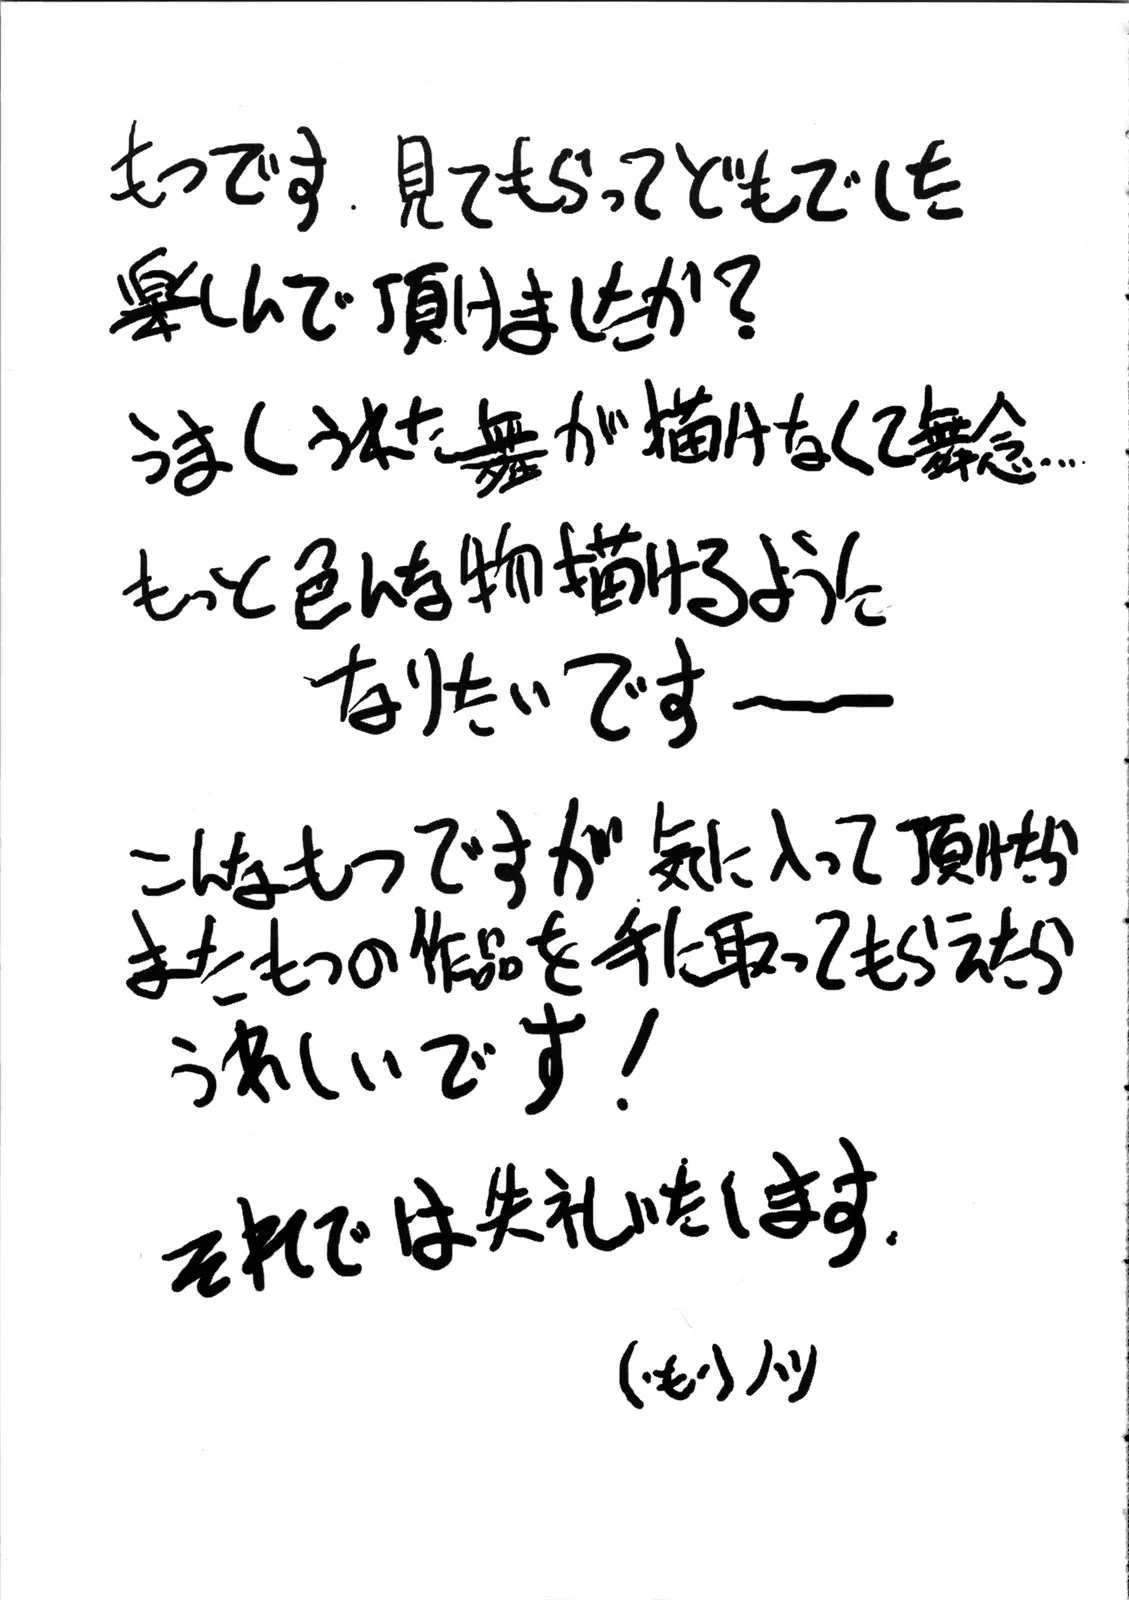 もつです. 見てもらってどもでした
楽しんで頂けましたか?
うまし うれた 舞が描けなくて無念....
もっと色んな物描けるように
なりたいです〜
こんなもつですが気に入って頂けたら
またもつの作品を手に取ってもらえたら
うれしいです!
それでは失礼いたします.
(・も・)ノシ